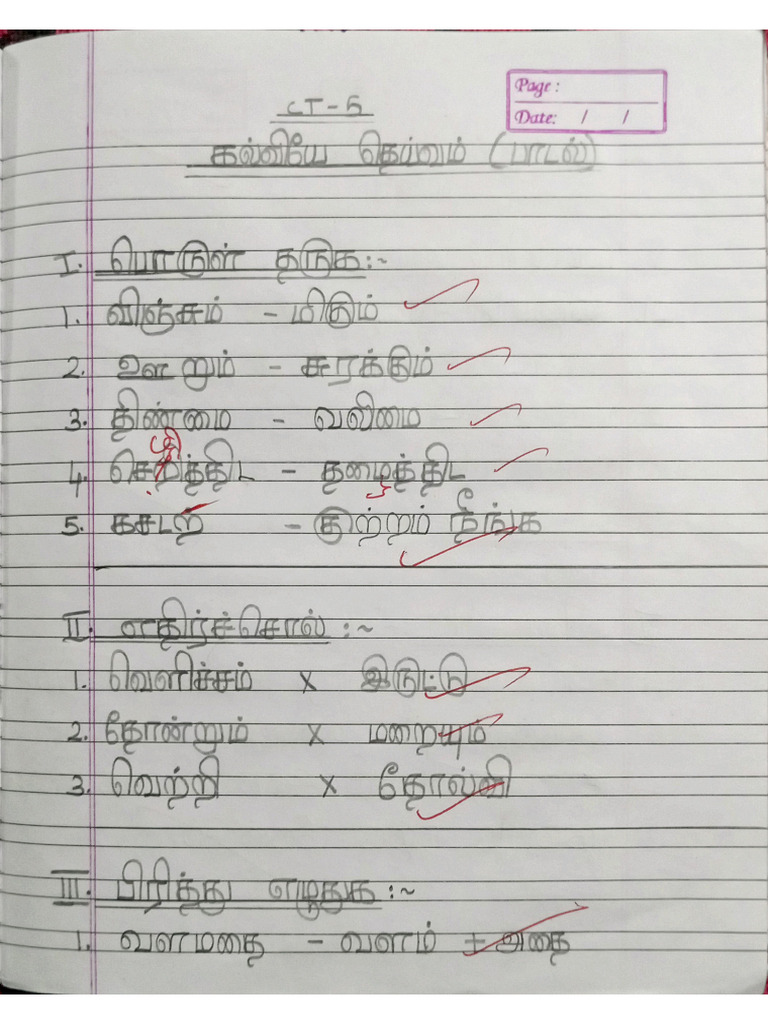 Page :
Date: / /
CT-5
கல்வியே தெய்வம் (பாடல்)
I. பொருள் தருக:~
1. விஞ்சும் - மிகும்
2. ஊறும் - சுரக்கும்
3. திண்மை - வலிமை
4. செறித்திட - தழைத்திட
5. கசடற - குற்றம் நீங்க
II. எதிர்ச்சொல் :~
1. வெளிச்சம் x இருட்டு
2. தோன்றும் x மறையும்
3. வெற்றி x தோல்வி
III. பிரித்து எழுதுக:~
1. வளமதை - வளம் + அதை